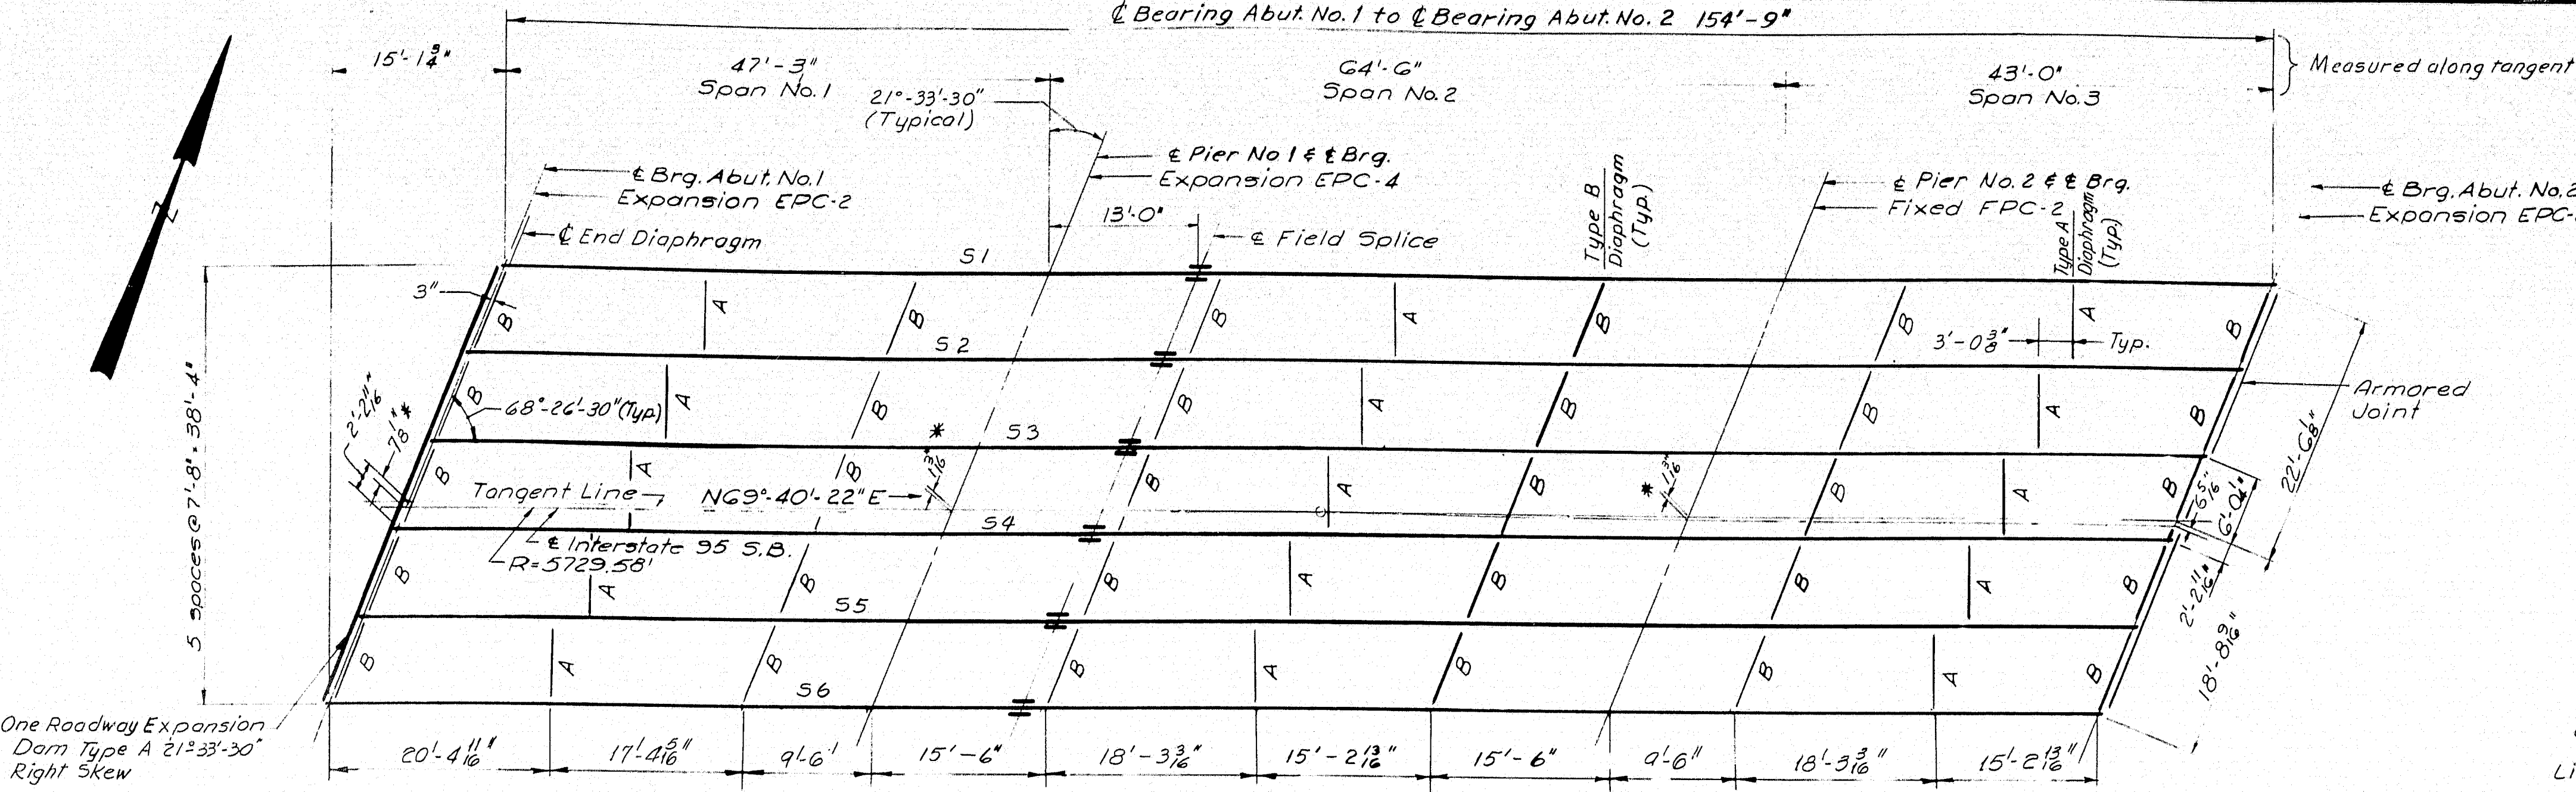 ℄ Bearing Abut. No. 1 to ℄ Bearing Abut. No. 2 154'-9"
15'-1 3/4"
47'-3"
Span No. 1
64'-6"
Span No. 2
43'-0"
Span No. 3
Measured along tangent
21°-33'-30"
(Typical)
℄ Brg. Abut. No. 1
Expansion EPC-2
℄ End Diaphragm
℄ Pier No 1 & ℄ Brg.
Expansion EPC-4
13'-0"
℄ Field Splice
Type B
Diaphragm
(Typ.)
℄ Pier No. 2 & ℄ Brg.
Fixed FPC-2
Type A
Diaphragm
(Typ.)
℄ Brg. Abut. No. 2
Expansion EPC-
Z
S1
3"
B A B B A B B A B
3'-0 3/8" Typ.
S2
B A B B A B B A B
68°-26'-30" (Typ.)
Armored
Joint
S3
2'-2 11/16"
7 1/8" *
B A B B A B B A B
* 1 3/16"
* 1 3/16"
Tangent Line N69°-40'-22"E
6 5/16"
6'-0 1/4"
22'-6 1/8"
S4
℄ Interstate 95 S.B.
R=5729.58'
B A B B A B B A B
2'-2 11/16"
18'-8 9/16"
S5
B A B B A B B A B
S6
5 spaces @ 7'-8" = 38'-4"
One Roadway Expansion
Dam Type A 21°33'-30"
Right Skew
20'-4 11/16" 17'-4 5/16" 9'-6' 15'-6" 18'-3 3/16" 15'-2 13/16" 15'-6" 9'-6" 18'-3 3/16" 15'-2 13/16"